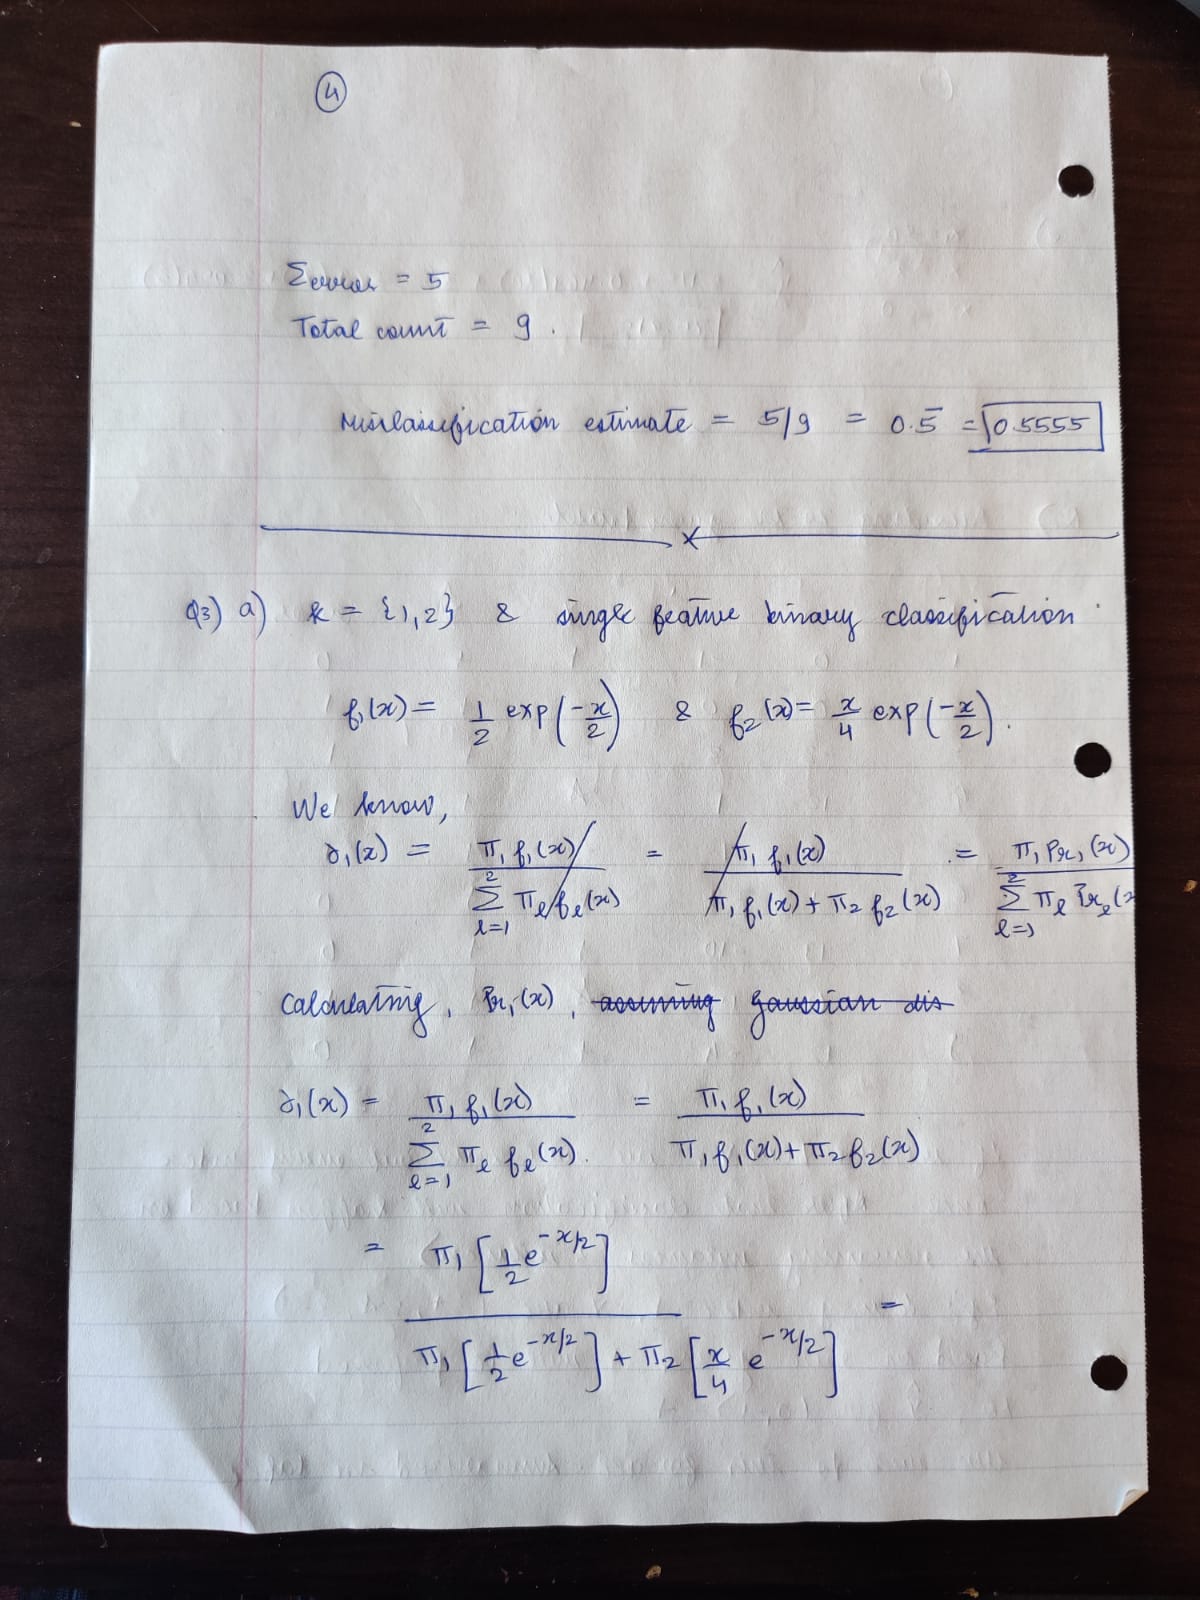 4
Σerror = 5
Total count = 9.
Misclassification estimate = 5/9 = 0.5̅ = 0.5555
x
Q3) a) k = {1,2} & single feature binary classification.
f₁(x) = 1/2 exp(-x/2) & f₂(x) = x/4 exp(-x/2).
We know,
∂₁(x) = π₁ f₁(x) / Σ_{l=1}^{2} π_l f_l(x) = π₁ f₁(x) / π₁ f₁(x) + π₂ f₂(x) = π₁ Pr₁(x) / Σ_{l=1}^{2} π_l Pr_l(x
Calculating, Pr₁(x), assuming gaussian dis
∂₁(x) = π₁ f₁(x) / Σ_{l=1}^{2} π_l f_l(x). = π₁ f₁(x) / π₁ f₁(x) + π₂ f₂(x)
= π₁ [1/2 e^{-x/2}] / π₁ [1/2 e^{-x/2}] + π₂ [x/4 e^{-x/2}] =